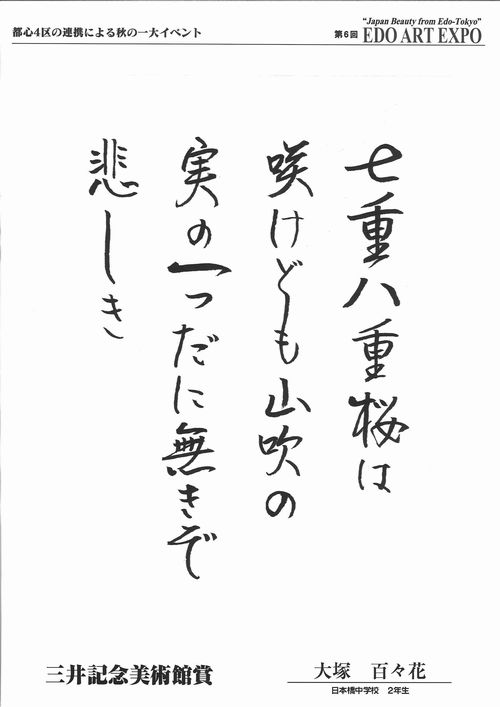 都心4区の連携による秋の一大イベント
"Japan Beauty from Edo-Tokyo"
第6回 EDO ART EXPO
七重八重桜は
咲けども山吹の
実の一つだに無きぞ
悲しき
三井記念美術館賞
大塚 百々花
日本橋中学校 2年生